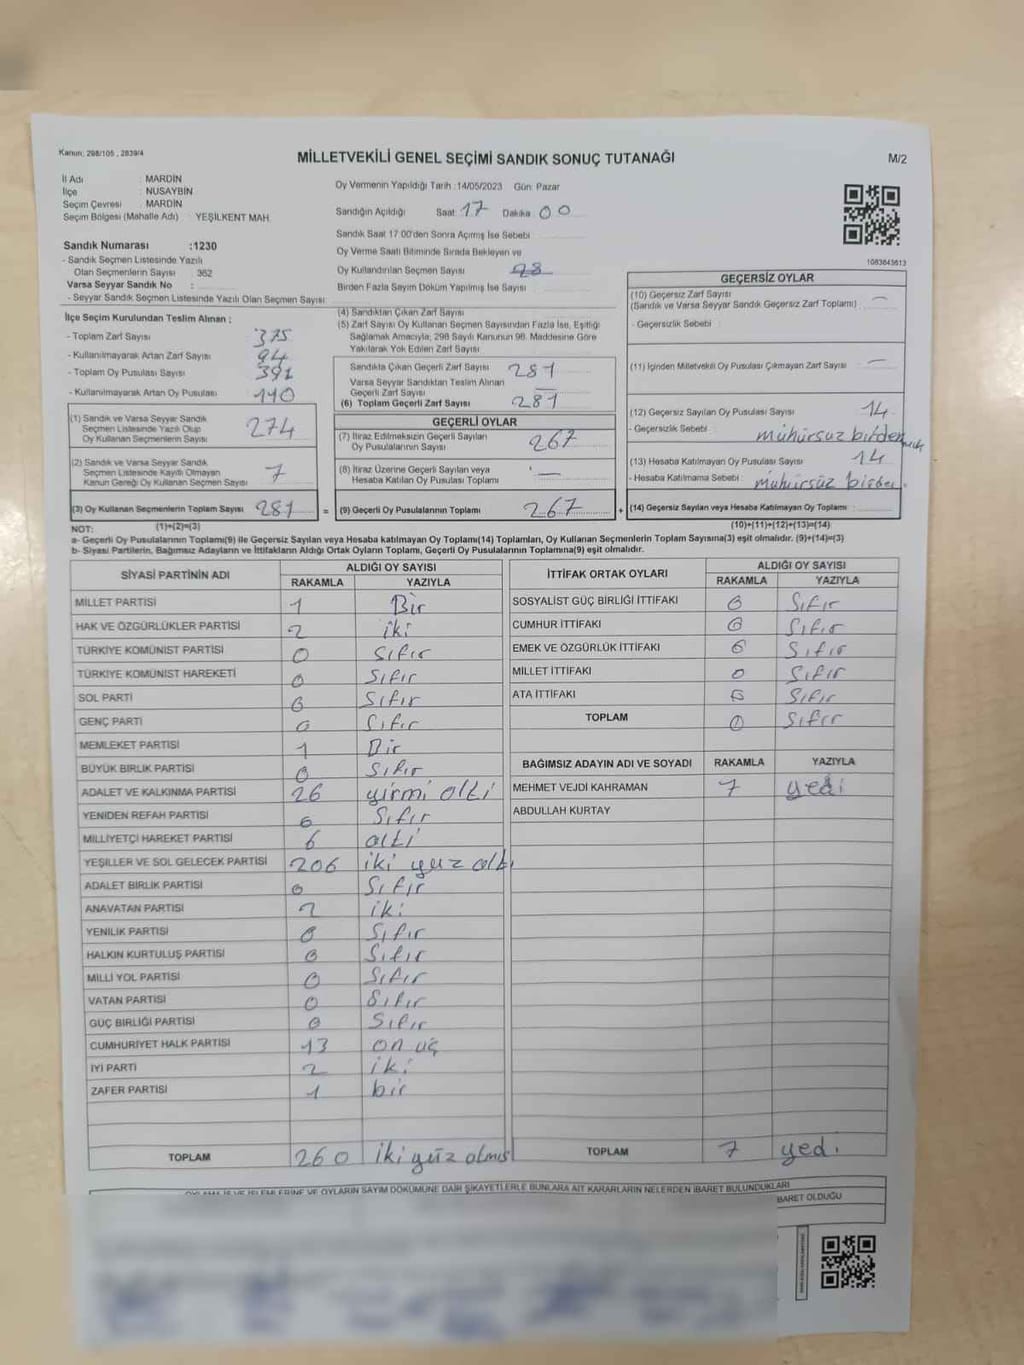 Kanun; 298/105 , 2839/4
MİLLETVEKİLİ GENEL SEÇİMİ SANDIK SONUÇ TUTANAĞI
M/2
İl Adı : MARDİN
İlçe : NUSAYBİN
Seçim Çevresi : MARDİN
Seçim Bölgesi (Mahalle Adı) : YEŞİLKENT MAH.
Sandık Numarası :1230
- Sandık Seçmen Listesinde Yazılı
Olan Seçmenlerin Sayısı : 362
Varsa Seyyar Sandık No :
- Seyyar Sandık Seçmen Listesinde Yazılı Olan Seçmen Sayısı :
Oy Vermenin Yapıldığı Tarih :14/05/2023 Gün: Pazar
Sandığın Açıldığı Saat: 17 Dakika: 00
Sandık Saat 17.00'den Sonra Açılmış İse Sebebi
Oy Verme Saati Bitiminde Sırada Bekleyen ve
Oy Kullandırılan Seçmen Sayısı
Birden Fazla Sayım Döküm Yapılmış İse Sayısı :
1083843613
İlçe Seçim Kurulundan Teslim Alınan ;
- Toplam Zarf Sayısı 375
- Kullanılmayarak Artan Zarf Sayısı 94
- Toplam Oy Pusulası Sayısı 391
- Kullanılmayarak Artan Oy Pusulası 110
(1) Sandık ve Varsa Seyyar Sandık
Seçmen Listesinde Yazılı Olup
Oy Kullanan Seçmenlerin Sayısı 274
(2) Sandık ve Varsa Seyyar Sandık
Seçmen Listesinde Kayıtlı Olmayan
Kanun Gereği Oy Kullanan Seçmen Sayısı 7
(3) Oy Kullanan Seçmenlerin Toplam Sayısı 281
(4) Sandıktan Çıkan Zarf Sayısı
(5) Zarf Sayısı Oy Kullanan Seçmen Sayısından Fazla İse, Eşitliği
Sağlamak Amacıyla; 298 Sayılı Kanunun 98. Maddesine Göre
Yakılarak Yok Edilen Zarf Sayısı
Sandıkta Çıkan Geçerli Zarf Sayısı 281
Varsa Seyyar Sandıktan Teslim Alınan
Geçerli Zarf Sayısı —
(6) Toplam Geçerli Zarf Sayısı 281
GEÇERLİ OYLAR
(7) İtiraz Edilmeksizin Geçerli Sayılan
Oy Pusulasının Sayısı 267
(8) İtiraz Üzerine Geçerli Sayılan veya
Hesaba Katılan Oy Pusulası Toplamı —
= (9) Geçerli Oy Pusulalarının Toplamı 267 +
GEÇERSİZ OYLAR
(10) Geçersiz Zarf Sayısı
(Sandık ve Varsa Seyyar Sandık Geçersiz Zarf Toplamı) —
- Geçersizlik Sebebi :
(11) İçinden Milletvekili Oy Pusulası Çıkmayan Zarf Sayısı —
(12) Geçersiz Sayılan Oy Pusulası Sayısı 14
- Geçersizlik Sebebi : mühürsüz
(13) Hesaba Katılmayan Oy Pusulası Sayısı 14
- Hesaba Katılmama Sebebi : mühürsüz
(14) Geçersiz Sayılan veya Hesaba Katılmayan Oy Toplamı :
NOT: (1)+(2)=(3) (10)+(11)+(12)+(13)=(14)
a- Geçerli Oy Pusulalarının Toplamı(9) ile Geçersiz Sayılan veya Hesaba katılmayan Oy Toplamı(14) Toplamları, Oy Kullanan Seçmenlerin Toplam Sayısına(3) eşit olmalıdır. (9)+(14)=(3)
b- Siyasi Partilerin, Bağımsız Adayların ve İttifakların Aldığı Ortak Oyların Toplamı, Geçerli Oy Pusulalarının Toplamına(9) eşit olmalıdır.
SİYASİ PARTİNİN ADI ALDIĞI OY SAYISI
RAKAMLA YAZIYLA
MİLLET PARTİSİ 1 Bir
HAK VE ÖZGÜRLÜKLER PARTİSİ 2 iki
TÜRKİYE KOMÜNİST PARTİSİ 0 Sıfır
TÜRKİYE KOMÜNİST HAREKETİ 0 Sıfır
SOL PARTİ 0 Sıfır
GENÇ PARTİ 0 Sıfır
MEMLEKET PARTİSİ 1 Bir
BÜYÜK BİRLİK PARTİSİ 0 Sıfır
ADALET VE KALKINMA PARTİSİ 26 yirmi altı
YENİDEN REFAH PARTİSİ 0 Sıfır
MİLLİYETÇİ HAREKET PARTİSİ 6 altı
YEŞİLLER VE SOL GELECEK PARTİSİ 206 iki yüz altı
ADALET BİRLİK PARTİSİ 0 Sıfır
ANAVATAN PARTİSİ 2 iki
YENİLİK PARTİSİ 0 Sıfır
HALKIN KURTULUŞ PARTİSİ 0 Sıfır
MİLLİ YOL PARTİSİ 0 Sıfır
VATAN PARTİSİ 0 Sıfır
GÜÇ BİRLİĞİ PARTİSİ 0 Sıfır
CUMHURİYET HALK PARTİSİ 13 on üç
İYİ PARTİ 2 iki
ZAFER PARTİSİ 1 bir
TOPLAM 260 iki yüz olmış
İTTİFAK ORTAK OYLARI ALDIĞI OY SAYISI
RAKAMLA YAZIYLA
SOSYALİST GÜÇ BİRLİĞİ İTTİFAKI 0 Sıfır
CUMHUR İTTİFAKI 0 Sıfır
EMEK VE ÖZGÜRLÜK İTTİFAKI 0 Sıfır
MİLLET İTTİFAKI 0 Sıfır
ATA İTTİFAKI 0 Sıfır
TOPLAM 0 Sıfır
BAĞIMSIZ ADAYIN ADI VE SOYADI RAKAMLA YAZIYLA
MEHMET VEJDİ KAHRAMAN 7 yedi
ABDULLAH KURTAY
TOPLAM 7 yedi
OYLAMA İŞ VE İŞLEMLERİNE VE OYLARIN SAYIM DÖKÜMÜNE DAİR ŞİKAYETLERLE BUNLARA AİT KARARLARIN NELERDEN İBARET BULUNDUKLARI
İBARET OLDUĞU